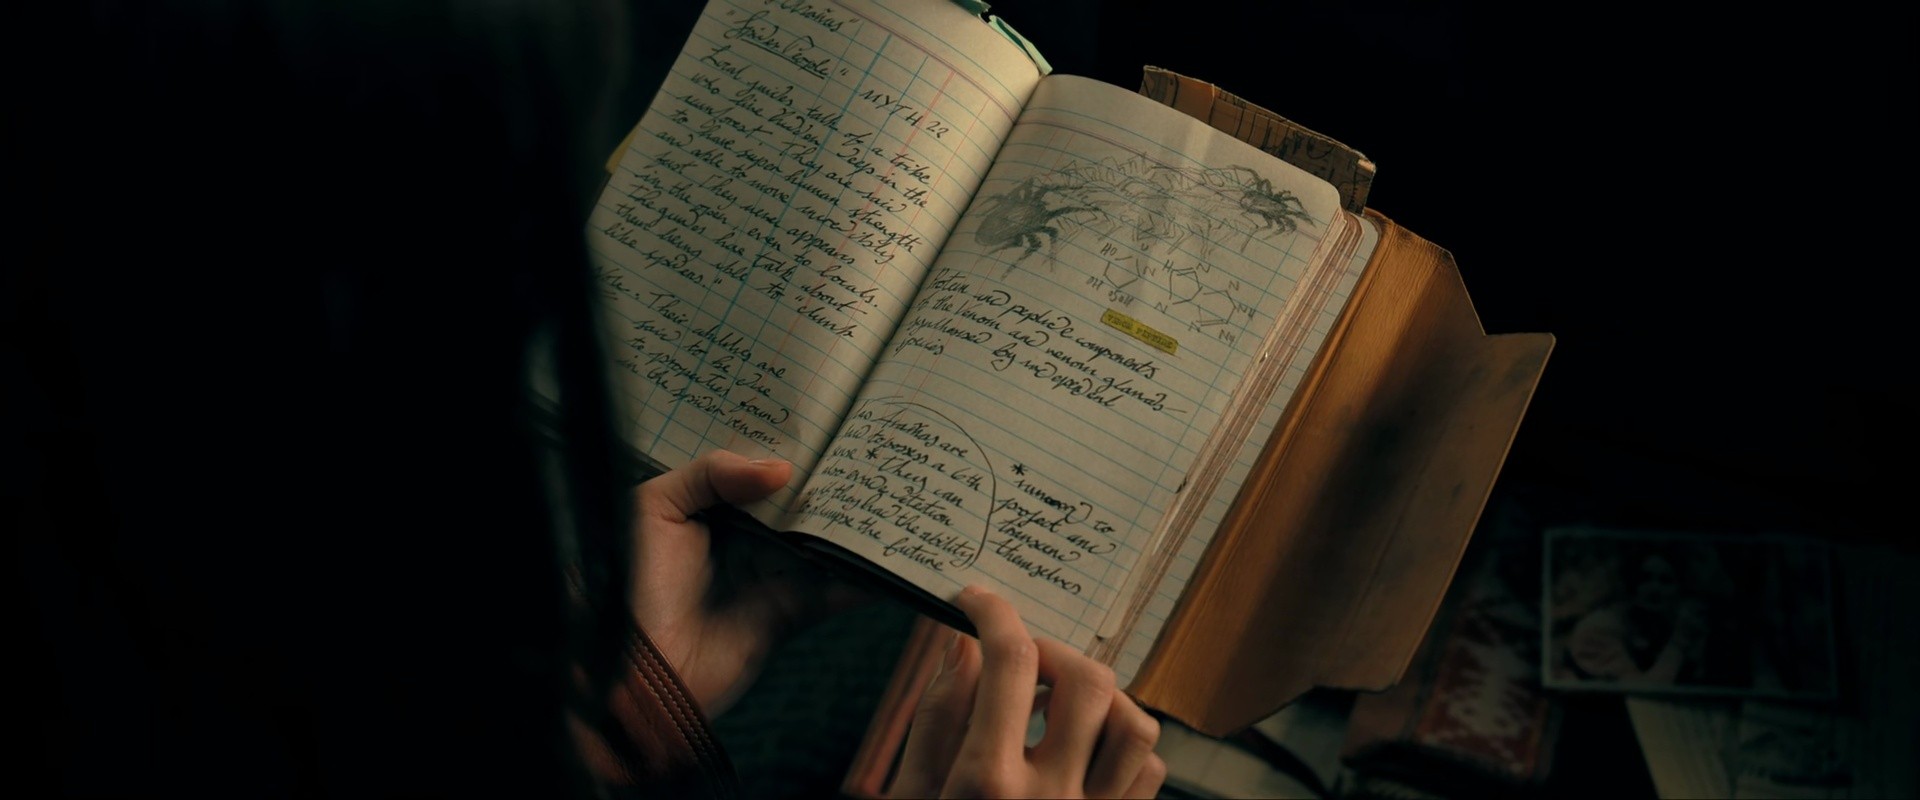 "Spider People"
MYTH 22
Local guides talk of a tribe
who live hidden deep in the
rainforest. They are said
to have super human strength
and able to move incredibly
fast. They never appears
in the open, even to locals.
The guides hae talk about
them being able to "climb
like spiders."
Their abilities are
said to be due
to properties found
in the spider venom.
HO
N
H
N
N
OH
OH
N
NH
N
N
NH
Protein and peptide components
of the Venom and venom glands-
synthorised by independent
species
Arañas are
to possess a 6th
* They can
detetion
if they had the ability
glimpse the future
*
to
project and
transend
themselves